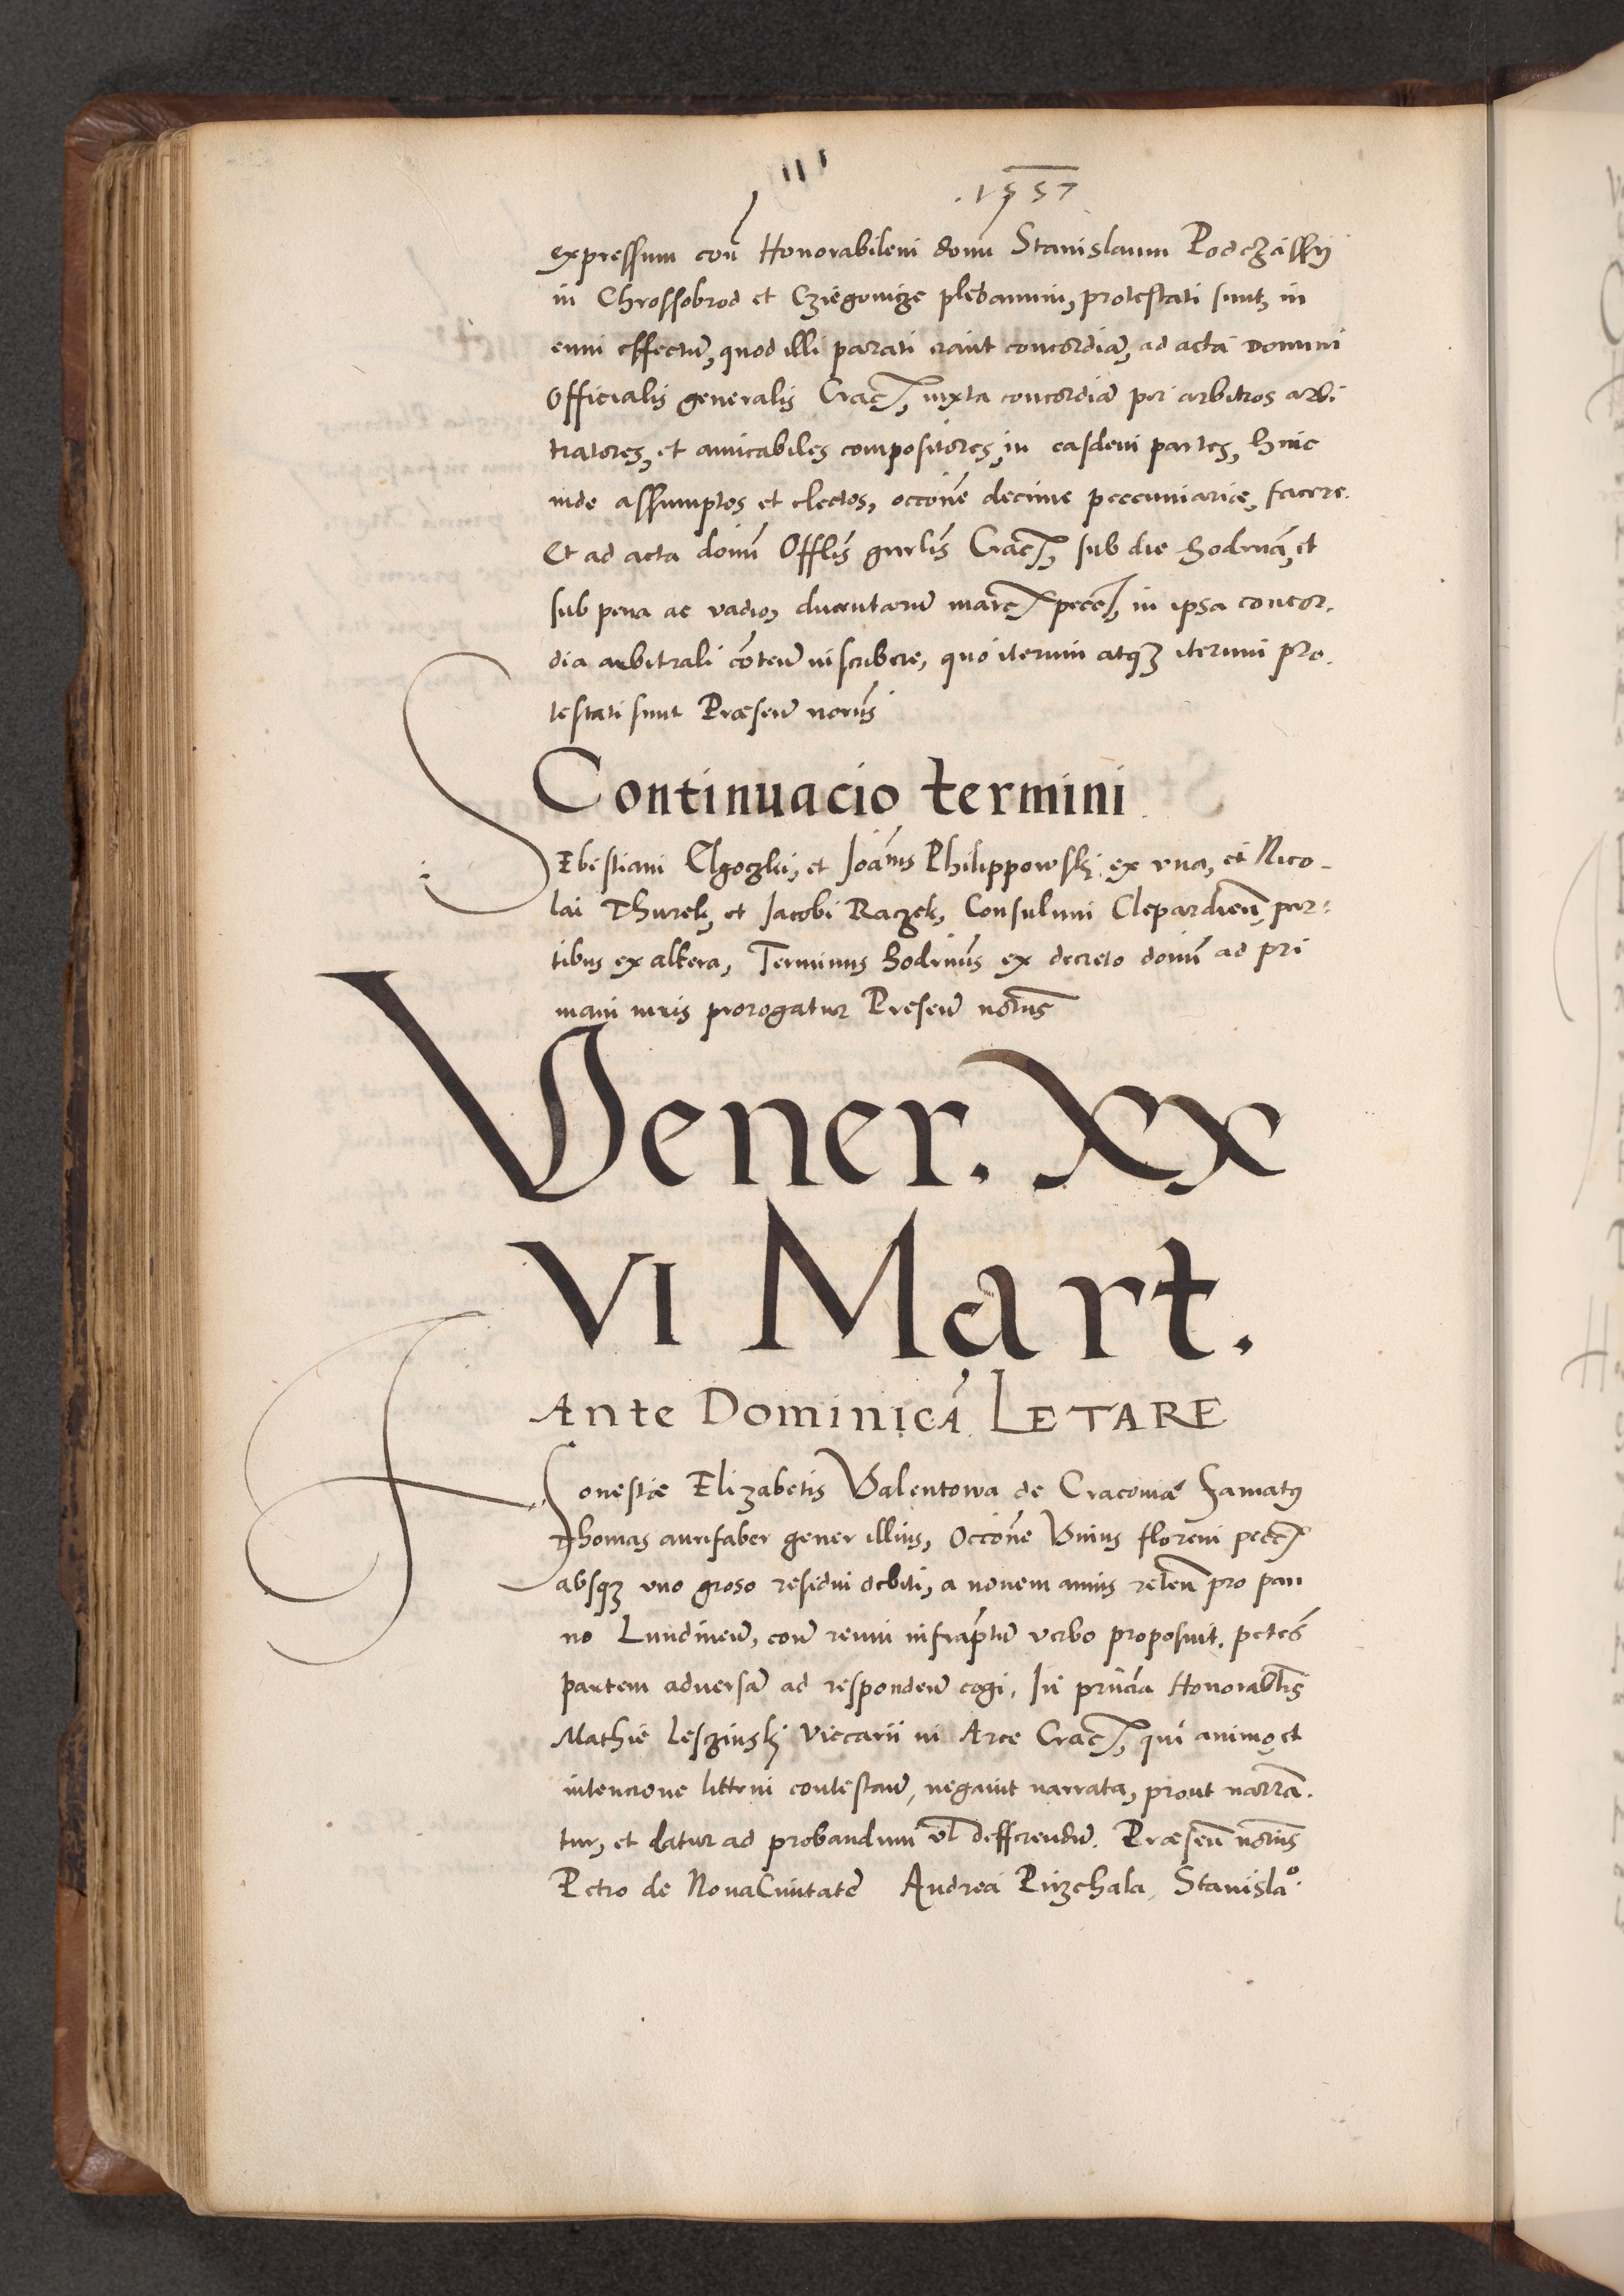 1557
expressum con̄ Honorabilem donū Stanislaum Podczasskÿ
in Chrossobrod et Cziegowicze plebanum, protestati sunt, in
eum effectū, quod illi parati erant concordiā, ad acta Domini
Officialis generalis Crac̄, iuxta concordiā per arbitros arbi
tratores, et amicabiles compositores, in easdem partes, hinc
inde assumptos et electos, occōne decime peccuniarie, facere.
Et ad acta donī Offlis gnrlis Crac̄, sub die hodrnā, et
sub pena ac vadio, ducentarū marc̄ pecc̄, in ipsa concor.
dia arbitrali cōten̄ inscribere, quo iterum atqȝ iterum pro.
testati sunt Præsen̄ norūs
Continuacio termini
SEbestiani Elgoczki, et Joānis Philippowski ex vna, et Nico-
lai Thurek, et Jacobi Raczek, Consulum Clepardien̄, par:
tibus ex altera, Terminus hodrnūs ex decreto donī ad pri
mam iuris prorogatur Presen̄ norūs
Vener. XX
VI Mart.
Ante Dominicā LETARE
Honestæ Elizabetis Valentowa de Cracoviæ Famatꝰ
Thomas aurifaber gener illius, Occōne Vnius floreni pecc̄
absqȝ vno groso residui debiti, a novem annis reten̄ pro pan
no Lundinen̄, con̄ reum infraptū verbo proposuit. petēs
partem adversā ad responden̄ cogi, In prn̄cia Honorablis
Mathie Leszinski Viccarii in Arce Crac̄, qui animo et
intencione littem contestan̄, negavit narrata, prout narrā.
tur, et datur ad probandum vl defferendū. Præsen̄ norūs
Petro de Nova Civitate Andrea Pirzchala, Stanislaᵒ